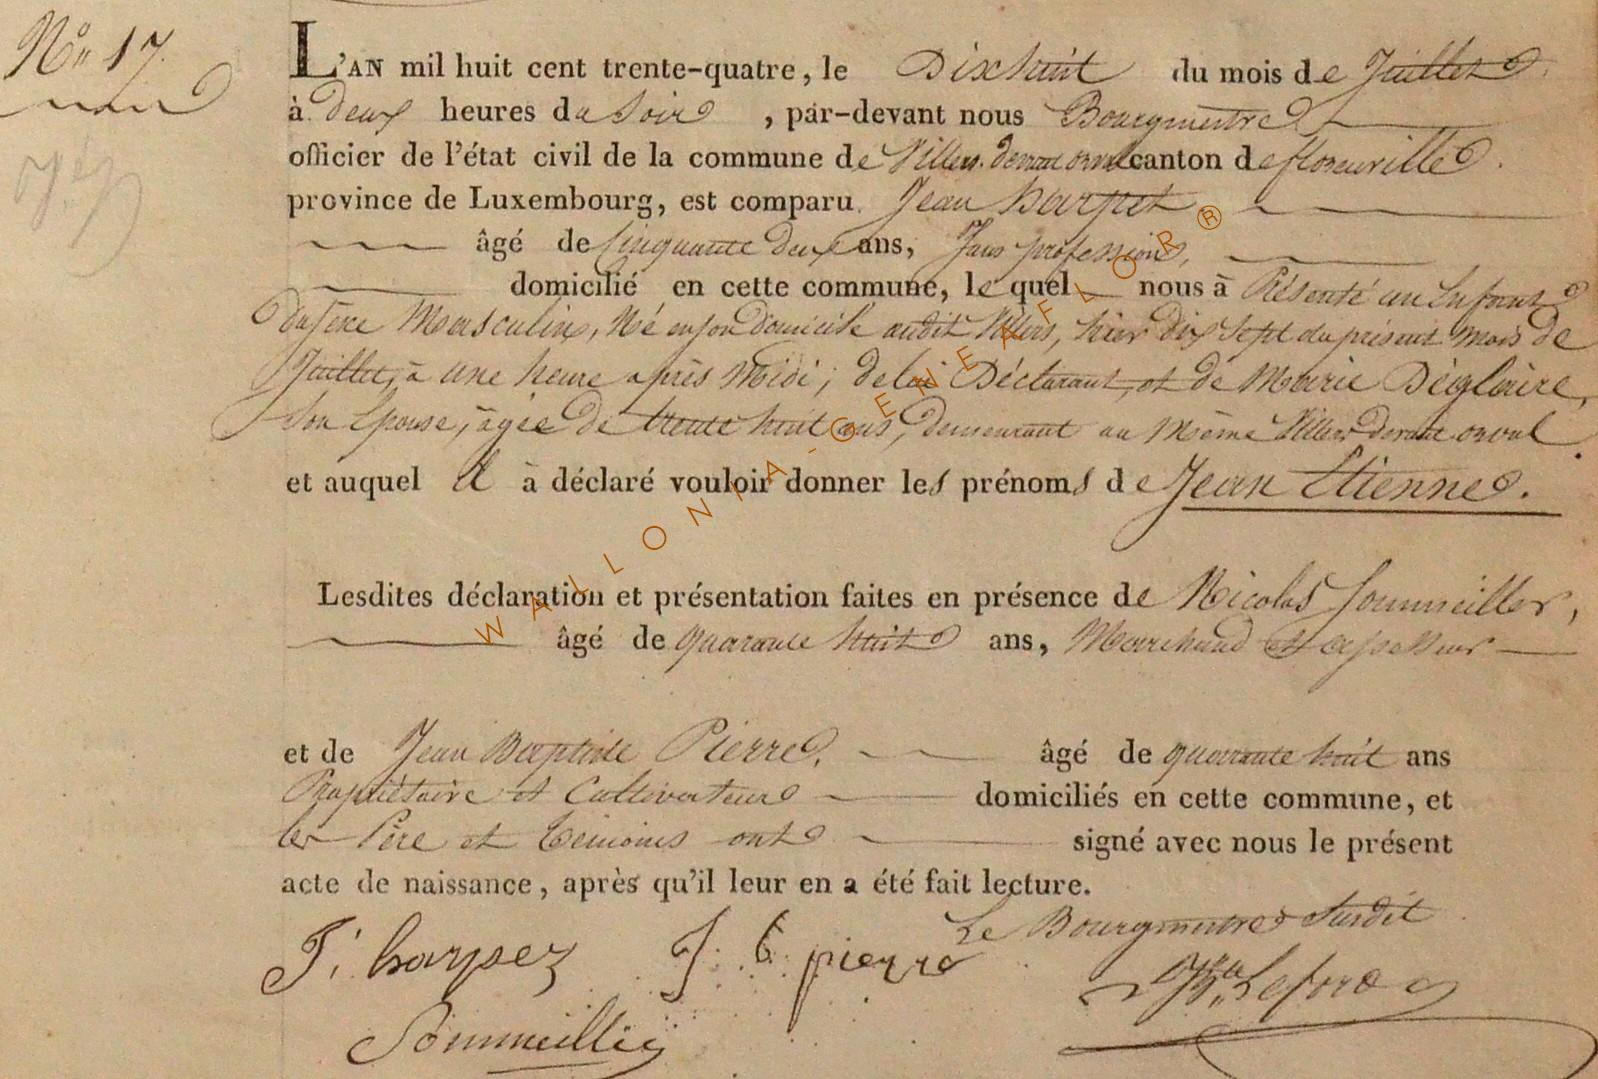 N° 17.
L'AN mil huit cent trente-quatre, le Dix huit du mois de Juillet.
à deux heures du Soir, par-devant nous Bourgmestre
officier de l'état civil de la commune de Villers devant orval canton de florenville.
province de Luxembourg, est comparu Jean harpet
âgé de Cinquante deux ans, Sans profession,
domicilié en cette commune, le quel nous à Présenté un Enfant
du Sexe Masculin, Né en son domicile audit Villers, hier dix Sept du présent mois de
Juillet, à une heure après Midi; de lui Déclarant, et de Marie Déglaire,
Son Epouse, agée de trente huit ans, demeurant au Même Villers devant orval.
et auquel il à déclaré vouloir donner les prénoms de Jean Etienne.
Lesdites déclaration et présentation faites en présence de Nicolas Soumeiller,
âgé de quarante huit ans, Marchand et assesseur
et de Jean Baptiste Pierre, âgé de quarante huit ans
Propriétaire et Cultivateur domiciliés en cette commune, et
les Père et témoins ont signé avec nous le présent
acte de naissance, après qu'il leur en a été fait lecture.
Le Bourgmestre Susdit
J. harpez J. b pierre
WALLONIA-GENEAFLOR®